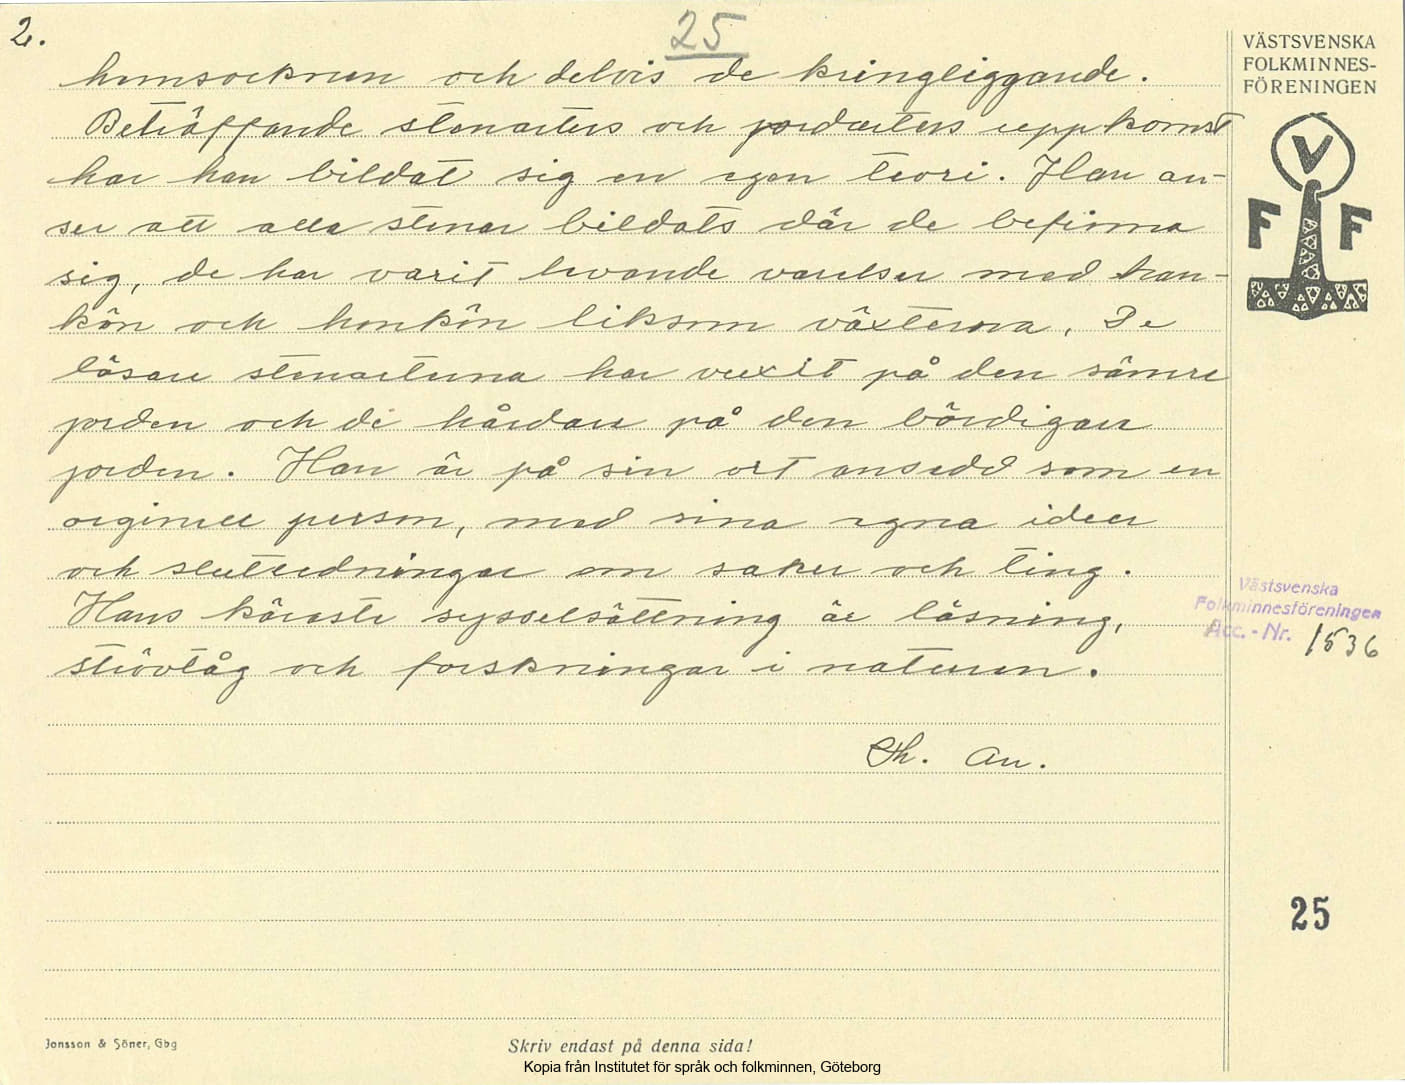 2.
25
hemsocknen och delvis de kringliggande.
Beträffande stenarters och jordarters uppkomst
har han bildat sig en egen teori. Han an-
ser att alla stenar bildats där de befinna
sig, de har varit levande varelser med han-
kön och honkön liksom växterna. De
lösare stenarterna har vuxit på den sämre
jorden och de hårdare på den bördigare
jorden. Han är på sin ort ansedd som en
orginell person, med sina egna ideer
och slutledningar om saker och ting.
Hans käraste sysselsättning är läsning,
strövtåg och forskningar i naturen.
Th. An.
VÄSTSVENSKA
FOLKMINNES-
FÖRENINGEN
V
F F
Västsvenska
Folkminnesföreningen
Acc.-Nr. 1536
25
Jonsson & Söner, Gbg
Skriv endast på denna sida!
Kopia från Institutet för språk och folkminnen, Göteborg